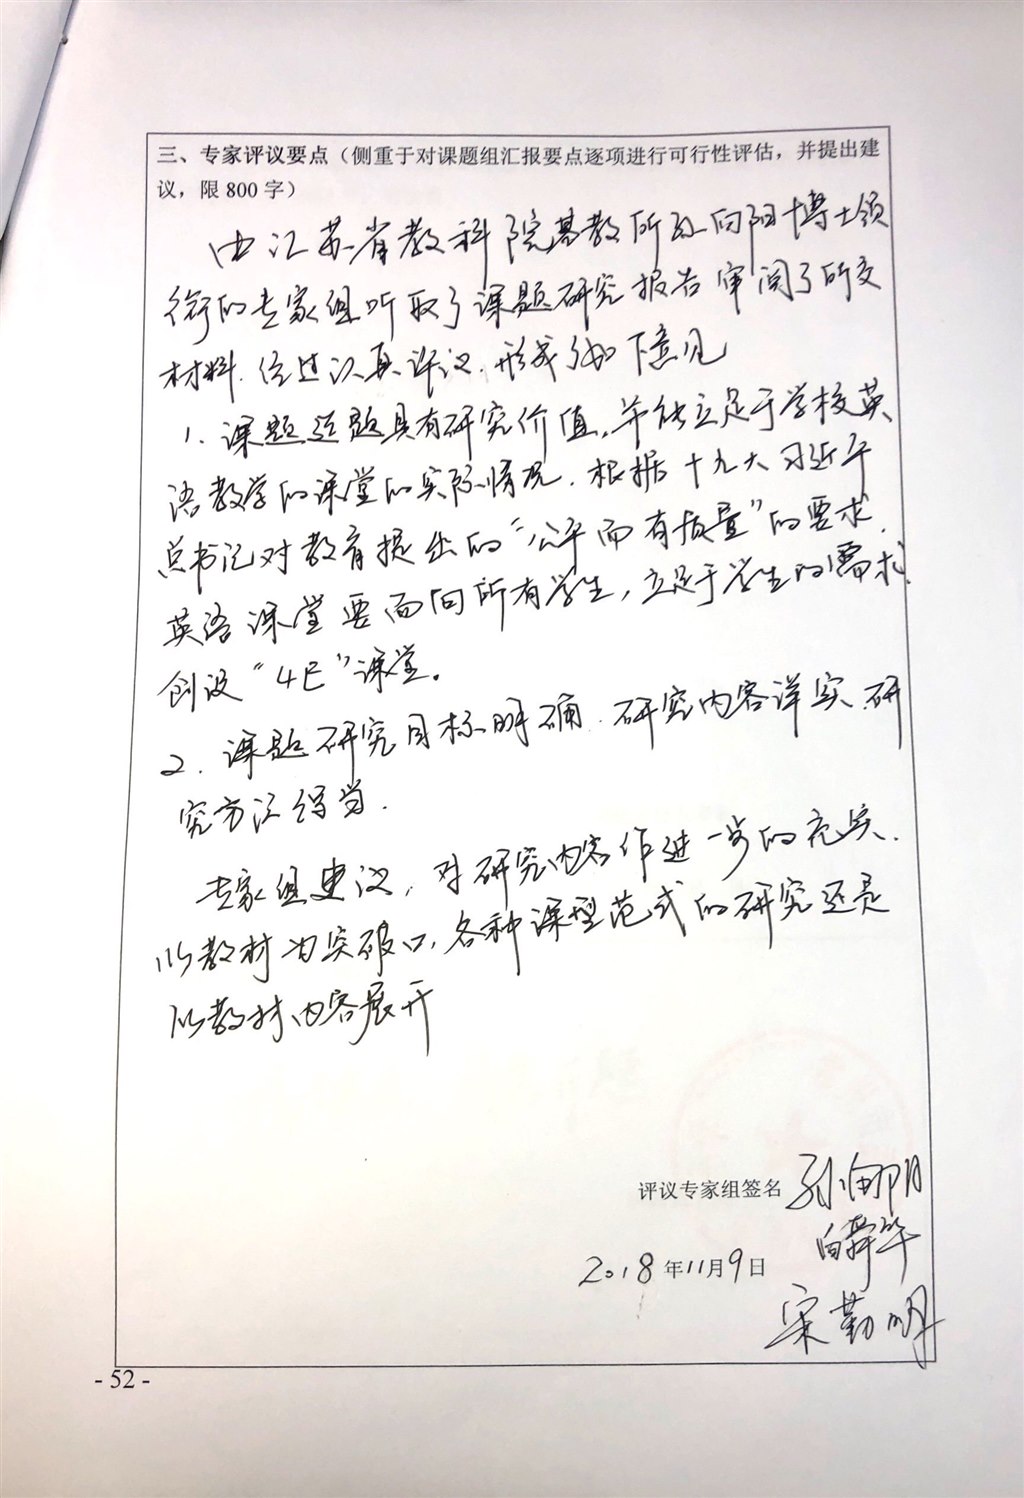 三、专家评议要点（侧重于对课题组汇报要点逐项进行可行性评估，并提出建
议，限 800 字）
由江苏省教科院基教所孙向阳博士领
衔的专家组听取了课题研究报告 审阅了所交
材料.经过认真评议.形成了如下意见
1、课题选题具有研究价值,并能立足于学校英
语教学的课堂的实际情况.根据十九大习近平
总书记对教育提出的“公平而有质量”的要求.
英语课堂要面向所有学生,立足于学生的需求.
创设“4E”课堂。
2.课题研究目标明确.研究内容详实.研
究方法得当.
专家组建议,对研究内容作进一步的充实.
以教材为突破口,各种课型范式的研究还是
以教材内容展开
评议专家组签名 孙向阳
白舜华
2018年11月9日
宋勤明
- 52 -